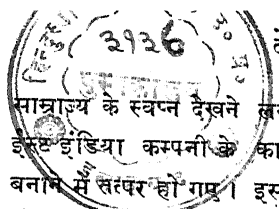 हिन्दुस्
३१२६
पुस्तकालय
साम्राज्य के स्वप्न देखने
ईस्ट इंडिया कम्पनी के का
बनाने में तत्पर हो गए। इस